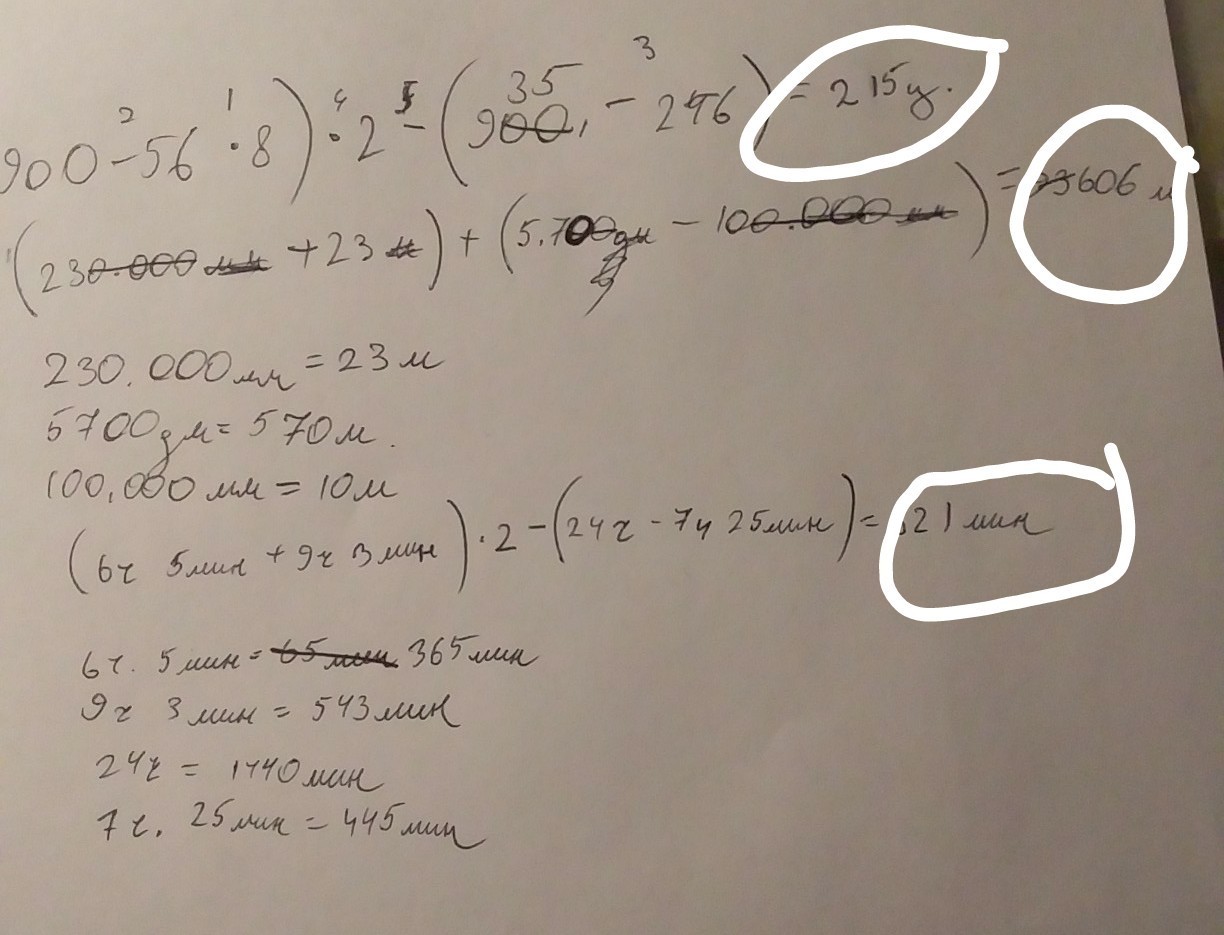 900 - 56 · 8) · 2 - (35 900, - 246) = 215 ц.
2 1 4 5 3
(230.000 мм + 23 м) + (5.700 дм - 100.000 мм) = 606 м
230.000 мм = 23 м
5700 дм = 570 м.
100,000 мм = 10 м
(6ч 5мин + 9ч 3мин) · 2 - (24ч - 7ч 25мин) = 21 мин
6ч. 5мин = 65мин 365мин
9ч 3мин = 543мин
24ч = 1440мин
7ч. 25мин = 445мин